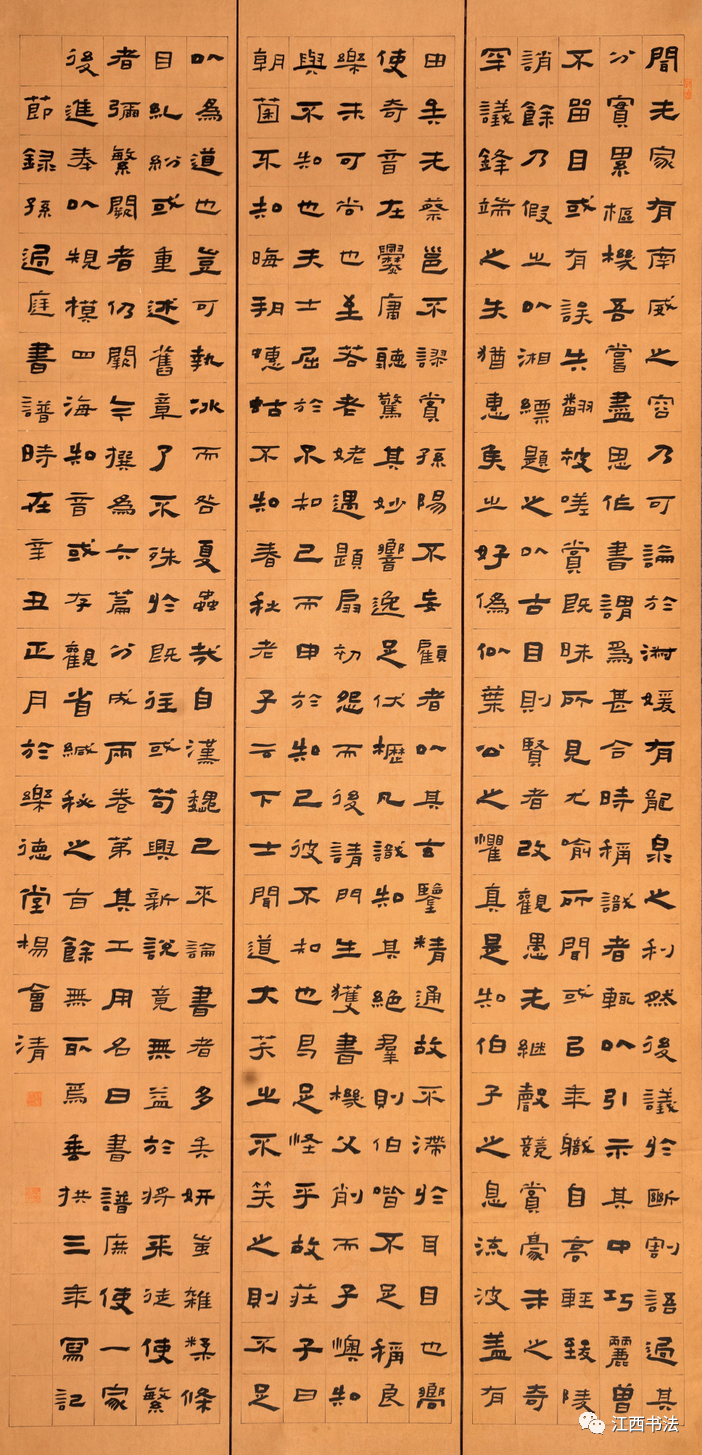 聞夫家有南威之容乃可論於淑媛有龍泉之利然後議於斷割語過其
分實累樞機吾嘗盡思作書謂為甚合時稱識者輒以引示其中巧麗曾
不留目或有誤失翻被嗟賞既昧所見尤喻所聞或以年職自高輕致陵
誚餘乃假之以湘縹題之以古目則賢者改觀愚夫繼聲競賞豪末之奇
罕議鋒端之失猶惠侯之好偽似葉公之懼真是知伯子之息流波蓋有
由矣夫蔡邕不謬賞孫陽不妄顧者以其玄鑒精通故不滯於耳目也嚮
使奇音在爨庸聽驚其妙響逸足伏櫪凡識知其絕羣則伯喈不足稱良
樂未可尚也至若老姥遇題扇初怨而後請門生獲書機父削而子懊知
與不知也夫士屈於不知己而申於知己彼不知也曷足怪乎故莊子曰
朝菌不知晦朔蟪蛄不知春秋老子云下士聞道大笑之不笑之則不足
以為道也豈可執冰而咎夏蟲哉自漢魏已來論書者多矣妍蚩雜糅條
目糾紛或重述舊章了不殊於既往或苟興新說竟無益於將來徒使繁
者彌繁闕者仍闕今撰為六篇分成兩卷第其工用名曰書譜庶使一家
後進奉以規模四海知音或存觀省緘秘之旨餘無取焉垂拱三年寫記
節録孫過庭書譜時在辛丑正月於樂德堂楊會清
江西书法